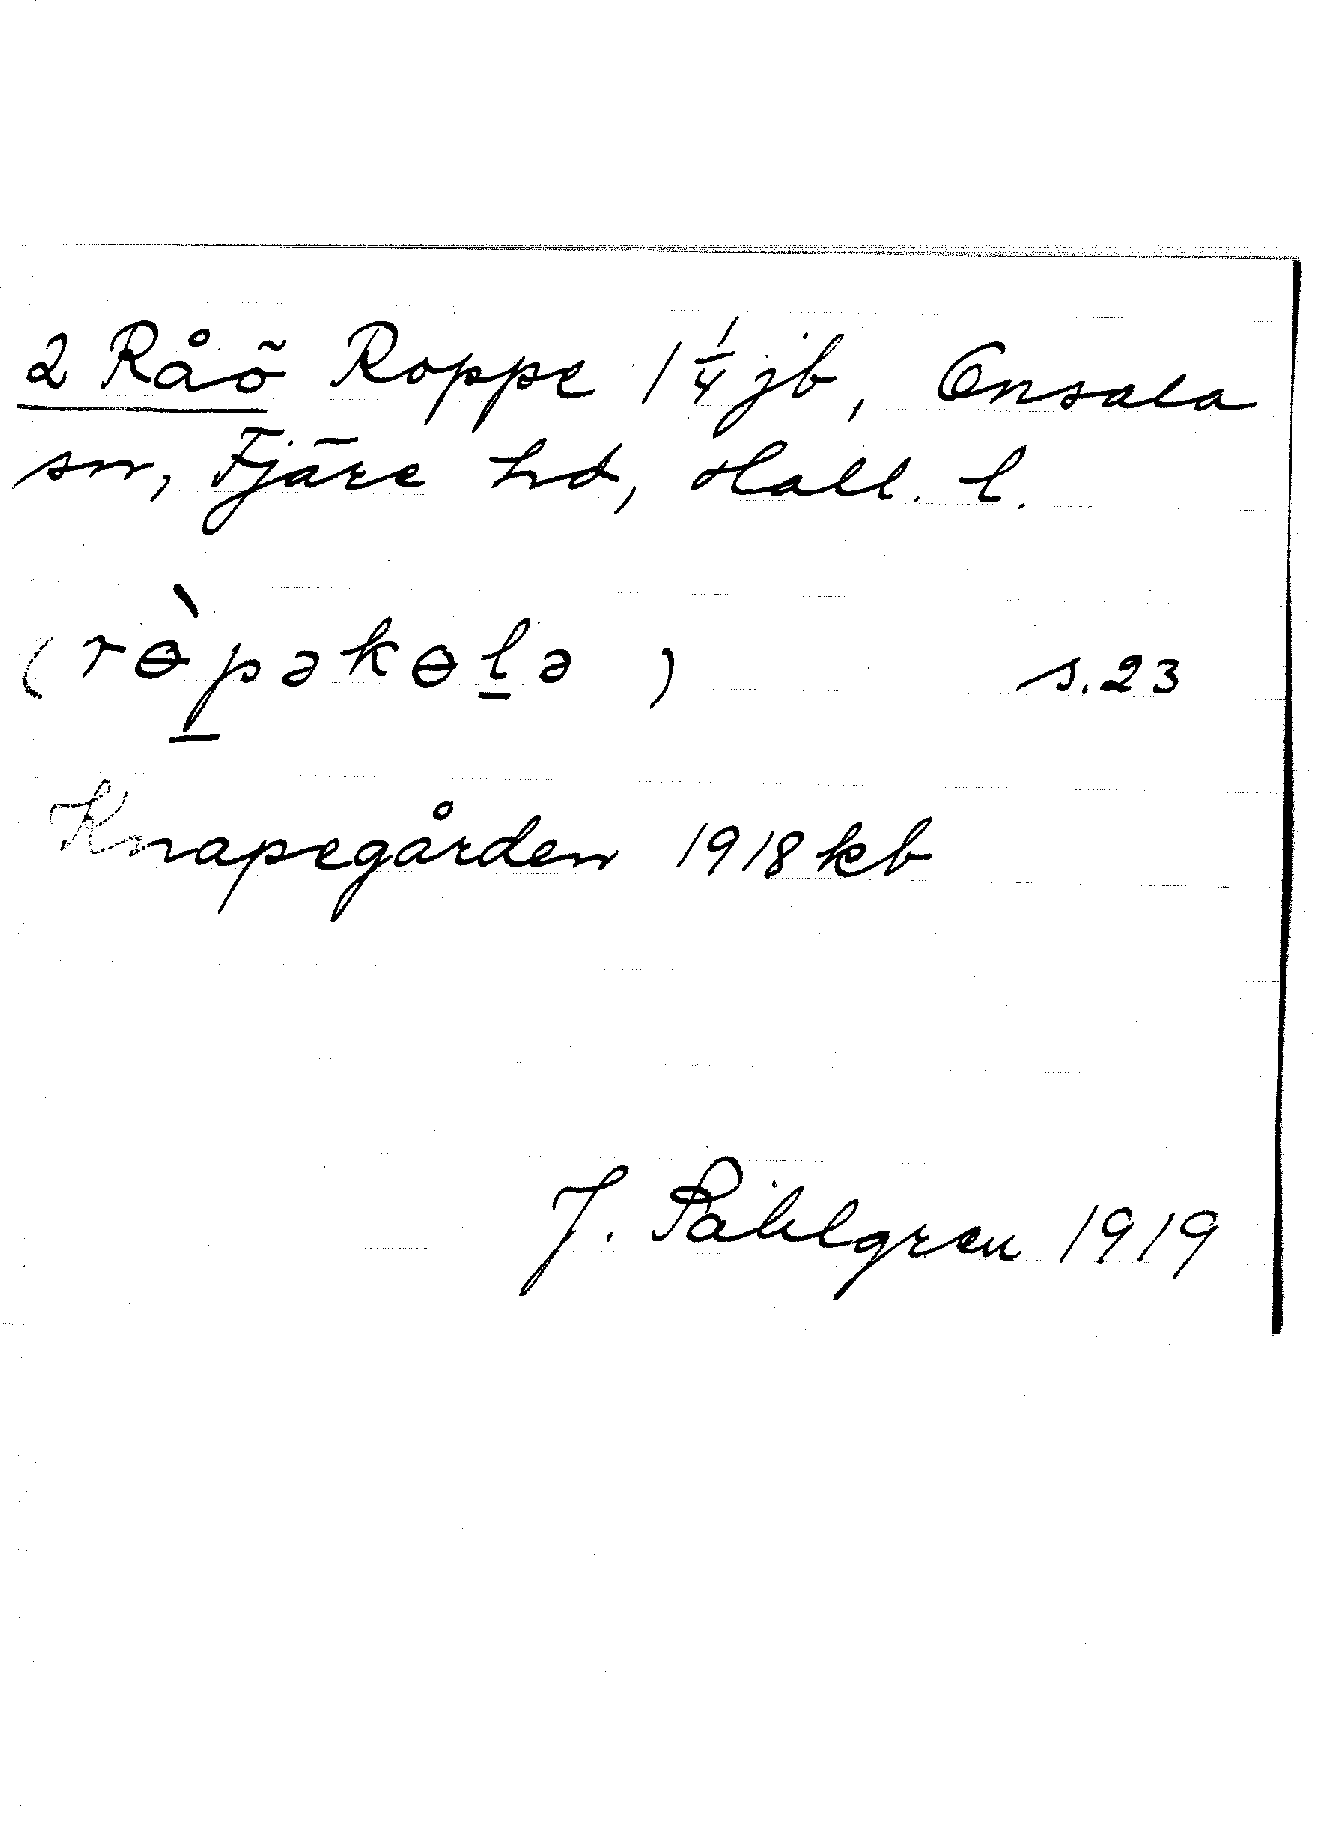 2 Råö Roppe 1 1/4 jb, Onsala
sn, Fjäre hd, Hall. l.
(rɵ̀p̲əkɵl̲ə) s.23
Knapegården 1918 kb
J. Påhlgren 1919